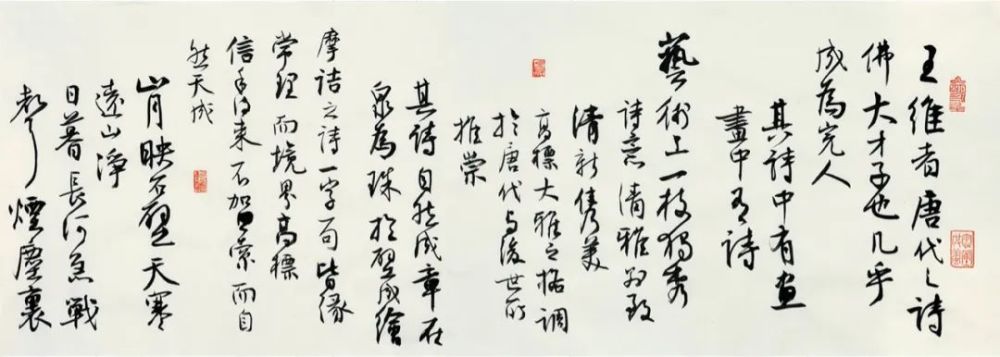 王維者唐代之詩
佛大才子也几乎
成為完人
其詩中有畫
畫中有詩
藝術上一枝獨秀
詩意清雅別致
清新雋美
高標大雅之格調
於唐代与後世所
推崇
其詩自然成章在
泉為珠於壁成繪
摩詰之詩一字一句皆緣
常理而境界高標
信手得来不加思索而自
然天成
山月映石壁天寒
遠山淨
日暮長河急戰
聲煙塵裏